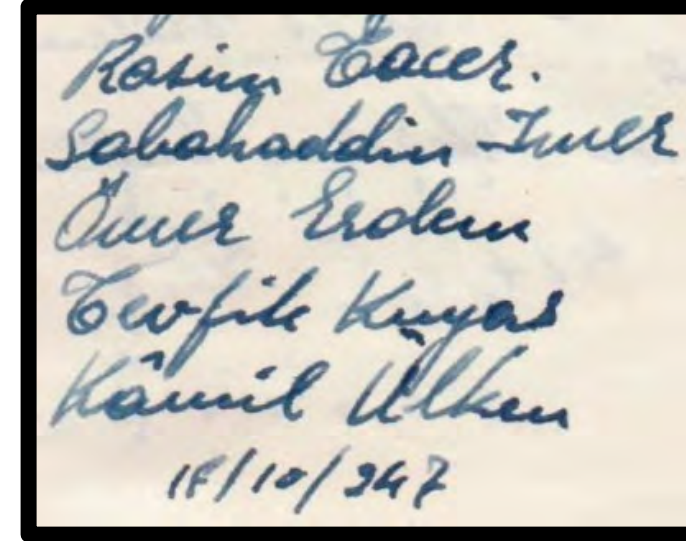 Rasim
Sabahaddin İmer
Ömer Erdem
Tevfik Kuyaş
Kâmil Ülken
18/10/947